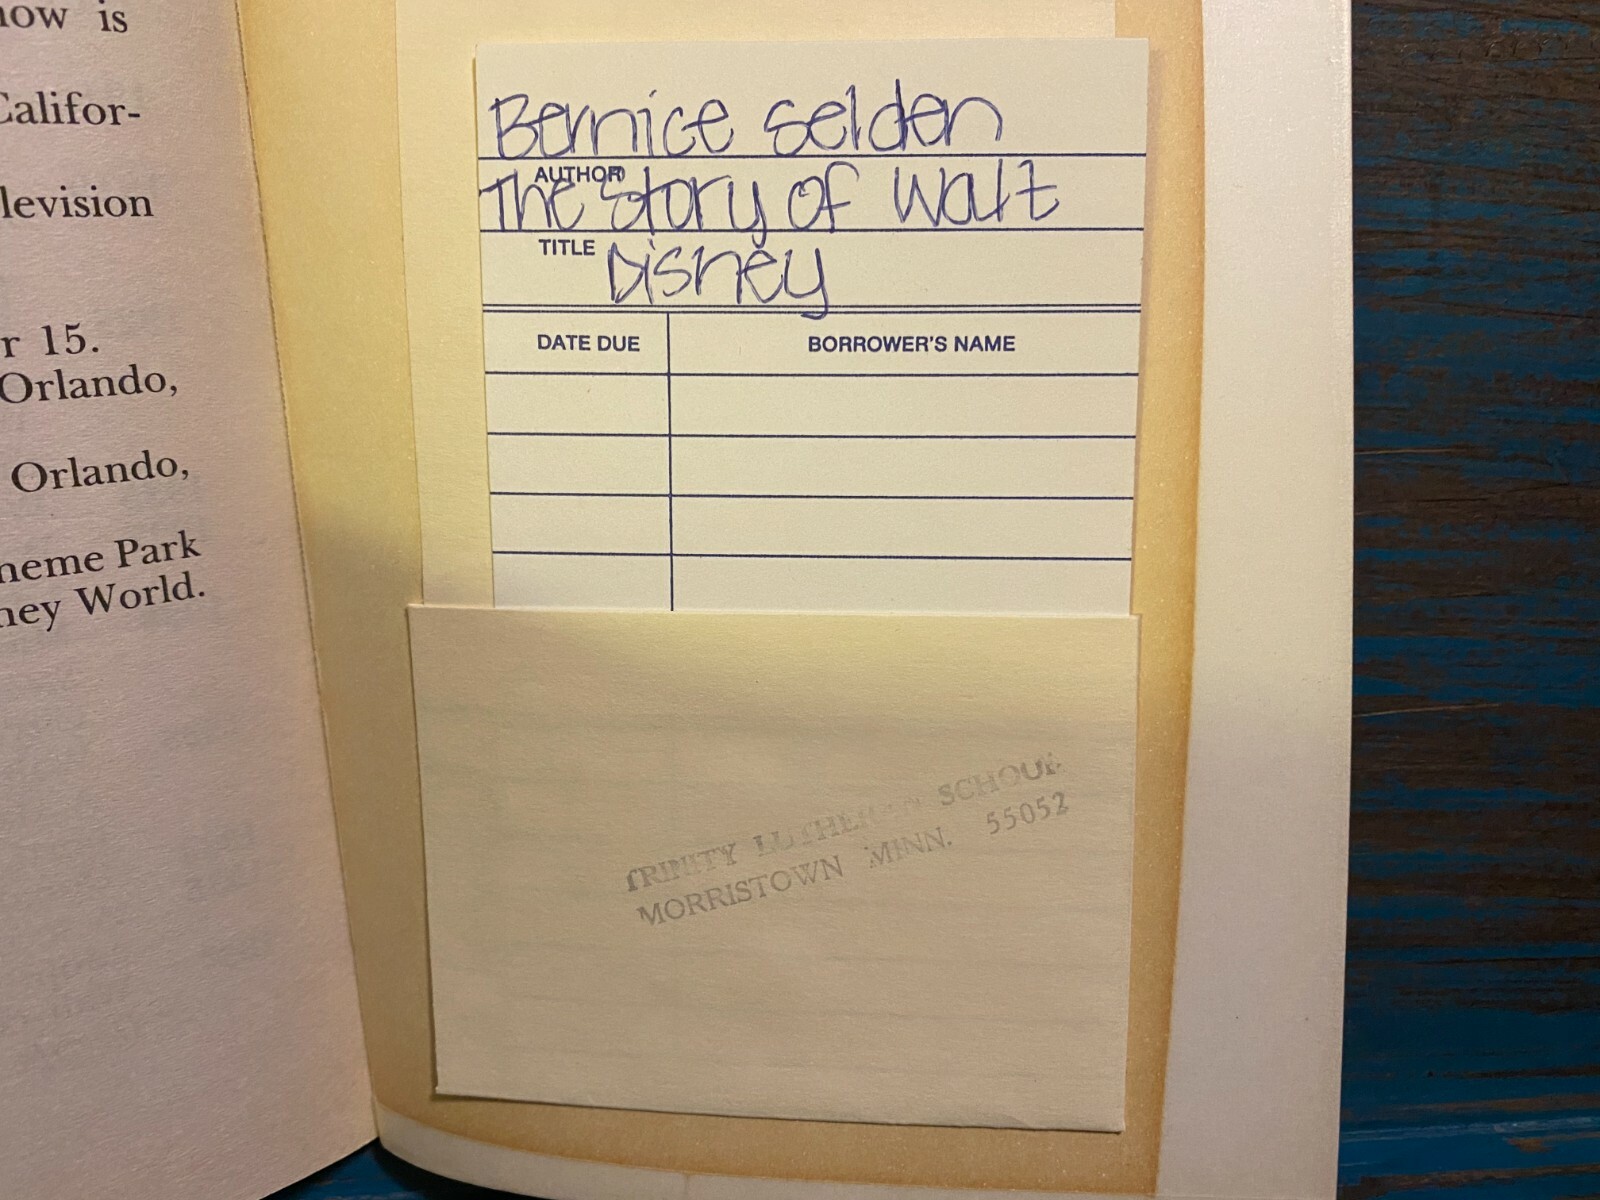 now is
Califor-
levision
r 15.
Orlando,
Orlando,
heme Park
ney World.
Bernice Selden
AUTHOR
The Story of Walt
TITLE
Disney
DATE DUE
BORROWER'S NAME
TRINITY LUTHERAN SCHOOL
MORRISTOWN MINN. 55052